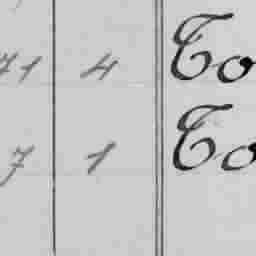 71 4 To
7 1 To